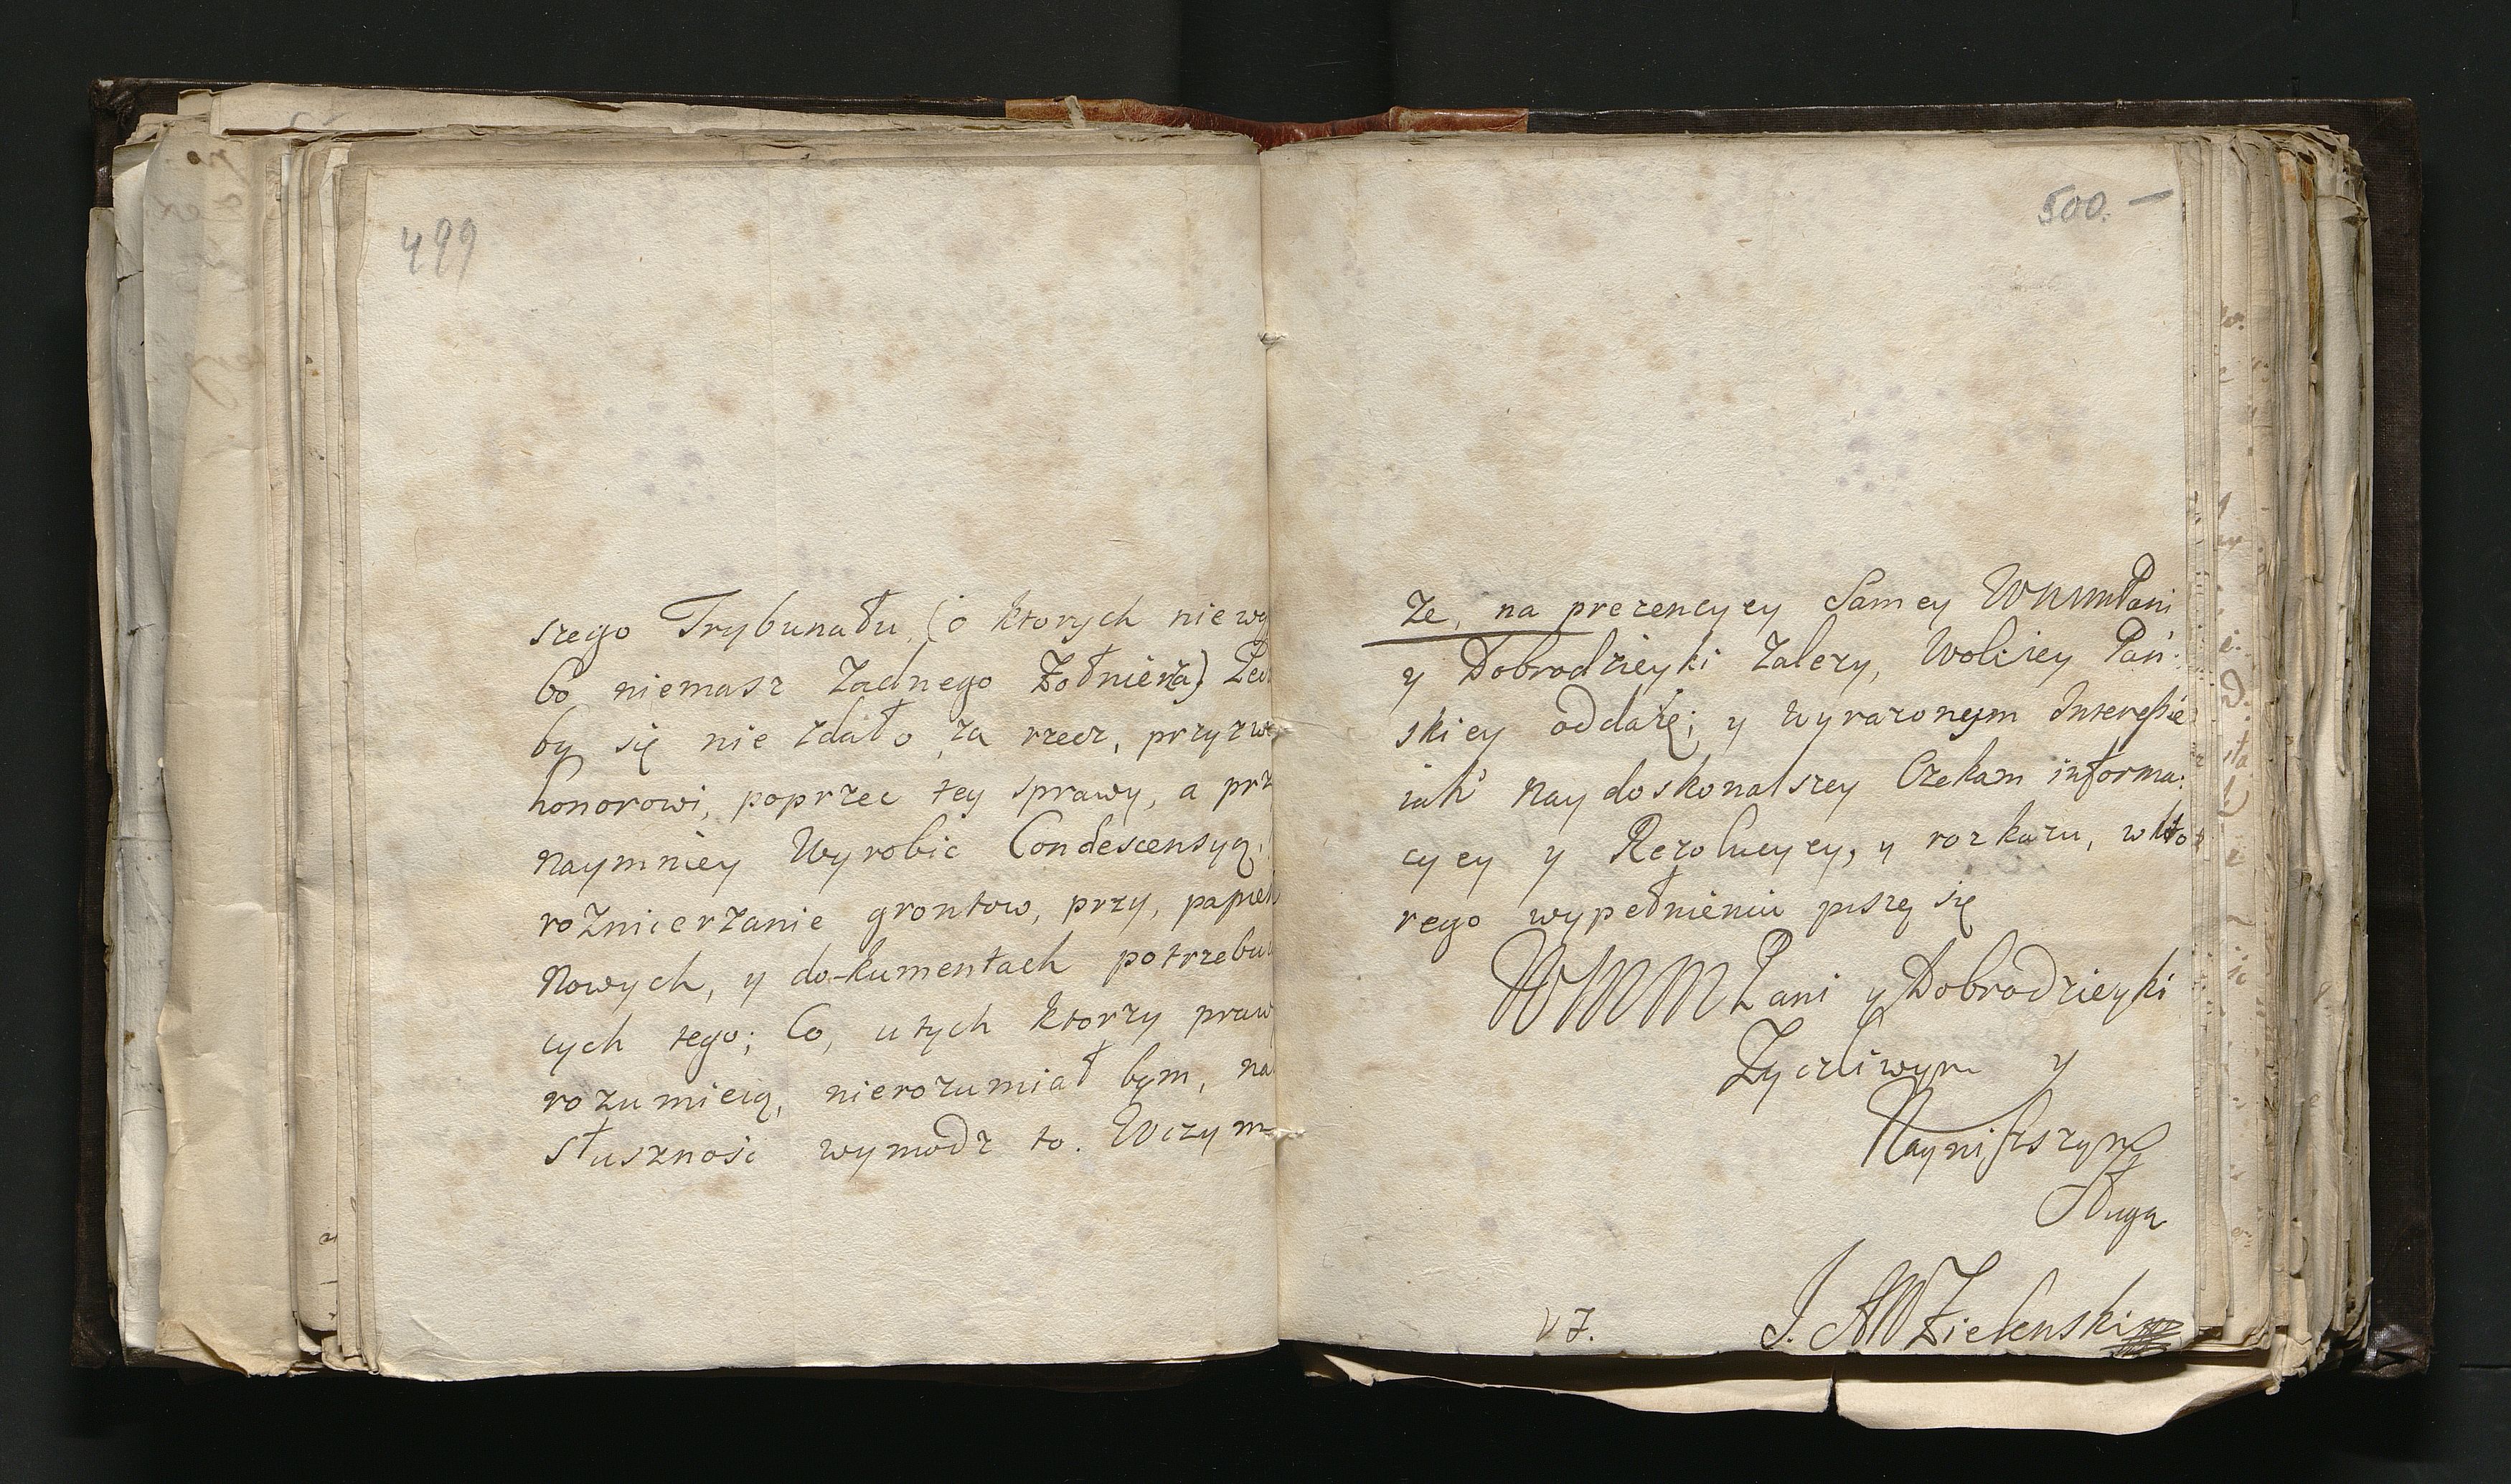 499
szego Trybunału, (o ktorych niewy
bo niemasz Zadnego Zołnierza)
by się nie zdało za rzecz,
honorowi, poprzec tey sprawy, a prz
naymniey Wyrobic Condescensyą,
roznicerzanie grontow, przy,
Nowych, y do-kumentach potrzebu
cych tego; Co, u tych ktorzy praw
rozumieią, nierozumiał bym, na
słusznosc wymodz to. Wczym
500. —
ze, na prezencyey Samey WMMPani
y Dobrodzieyki Zalezy, Woliiey Pań:
skiey oddaię; y wyrazonym Interessie
iak naydoskonalszey Czekam informa:
cyey y Rezolucyey, y rozkazu, w kto
rego wypełnieniu piszę się
WMMPani y Dobrodzieyki
Zyczliwym y
Nayniższym
Sługą
V J. J. AW Zielenski